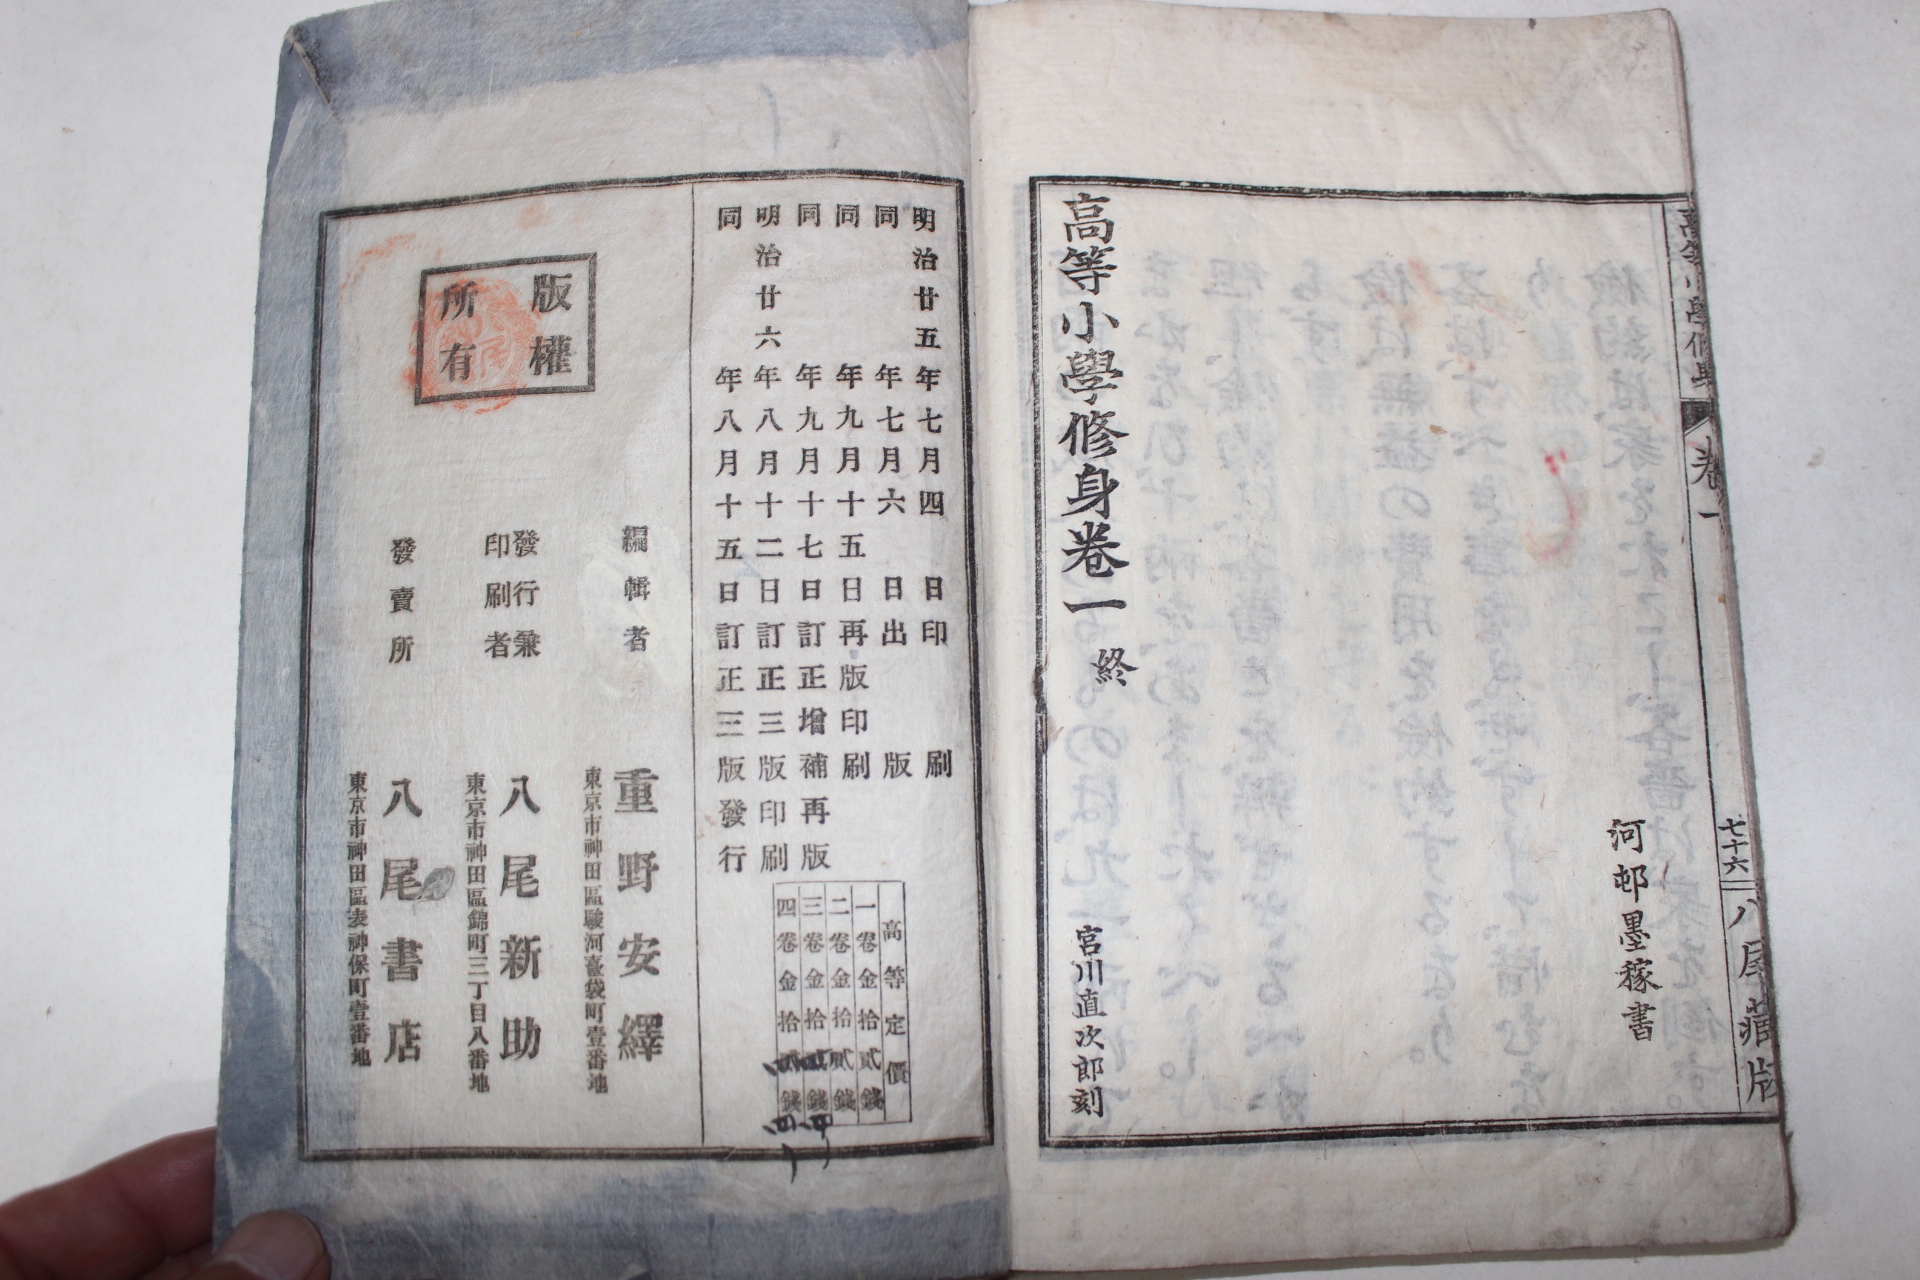 高等小學修身
卷一
七十六
八尾藏版
河邨墨稼書
高等小學修身卷一 終
宮川直次郎刻
明治廿五年七月四日印刷
同年七月六日出版
同年九月十五日再版印刷
同年九月十七日訂正增補再版
明治廿六年八月十二日訂正三版印刷
同年八月十五日訂正三版發行
高等定價
一卷金拾貳錢
二卷金拾貳錢
三卷金拾錢
四卷金拾貳錢
版權
所有
編輯者 重野安繹
東京市神田區駿河臺袋町壹番地
發行兼
印刷者 八尾新助
東京市神田區錦町三丁目八番地
發賣所 八尾書店
東京市神田區表神保町壹番地